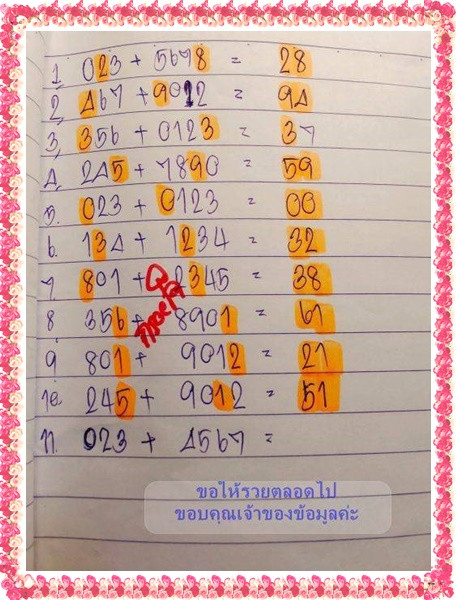 1. 023 + 5678 = 28
2. 467 + 9012 = 94
3. 356 + 0123 = 37
4. 245 + 7890 = 59
5. 023 + 0123 = 00
6. 134 + 1234 = 32
7. 801 + 2345 = 38
8 356 + 8901 = 61
9 801 + 9012 = 21
10 245 + 9012 = 51
11. 023 + 4567 =
ขอให้รวยตลอดไป
ขอบคุณเจ้าของข้อมูลค่ะ